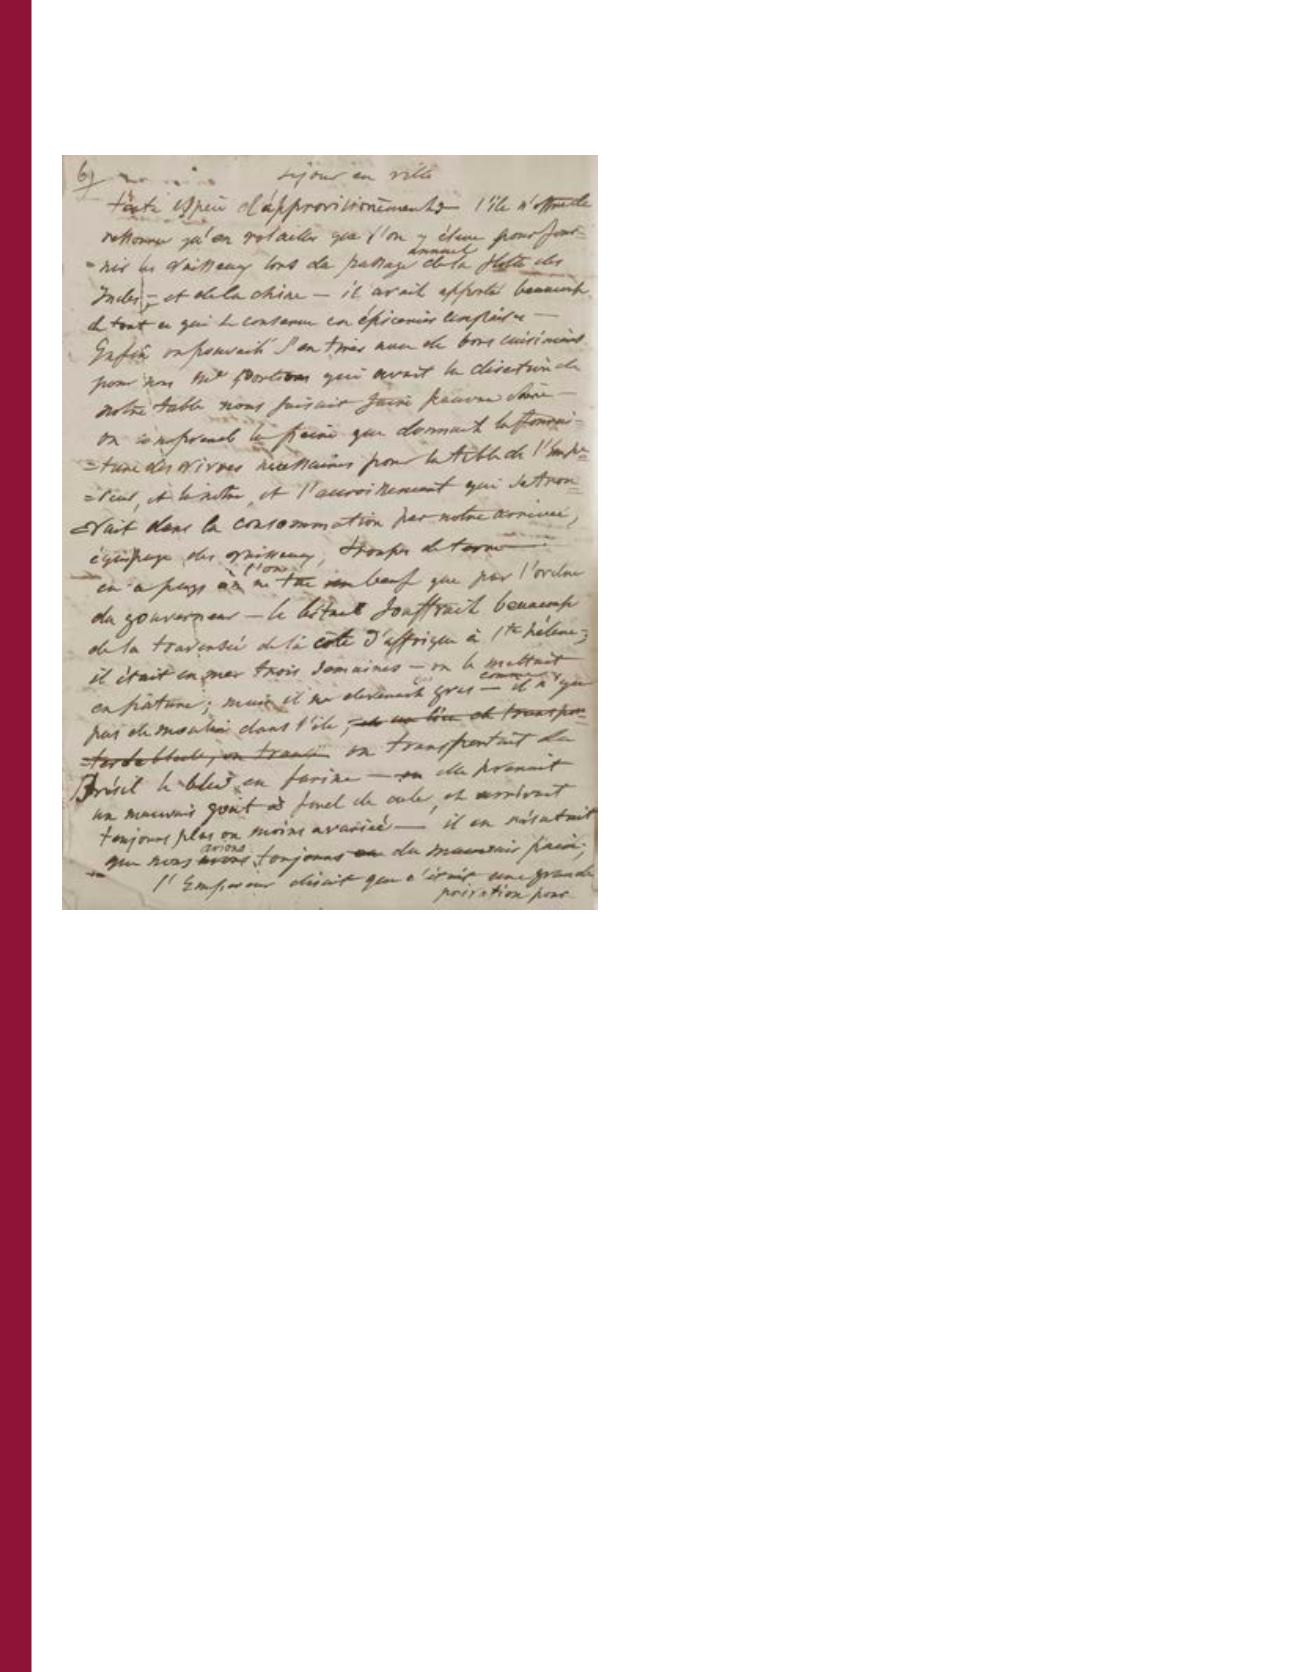 6
séjour en ville
toute espèce d'approvisionements l'île n'offre de
ressource qu'en volailles que l'on y élève pour four=
=nir les vaisseaux lors du passage annuel de la flotte des
Indes = et de la chine — il avait apporté beaucoup
de tout ce qui se conserve en épiceries
Enfin on pouvait s'en tirer avec de bons cuisiniers
pour nous Mr qui avait la direction de
notre table nous faisait faire pauvre chère —
on comprend la peine que donnait la fourni=
=ture des vivres nécessaires pour la table de l'Empe=
=reur, et la notre, et l'accroissement qui se trou=
=vait dans la consommation par notre arrivée,
équipage des vaisseaux, troupes de terre
en a pays l'on ne tue un bœuf que par l'ordre
du gouverneur — le bétail souffrait beaucoup
de la traversée de la côte d'affrique à Ste hélène =
il était en mer trois semaines — on le mettait
en pâture ; mais il ne devenait gras — comme il n'y a
pas de moulin dans l'île, et au lieu de transpor=
=ter de bleds, on on transportait du
Brésil le bled en farine — elle prenait
un mauvais goût à fond de cale, et arrivait
toujours plus ou moins avariée — il en résultait
que nous avions toujours du mauvais pain ;
l'Empereur disait que c'était une grande
privation pour